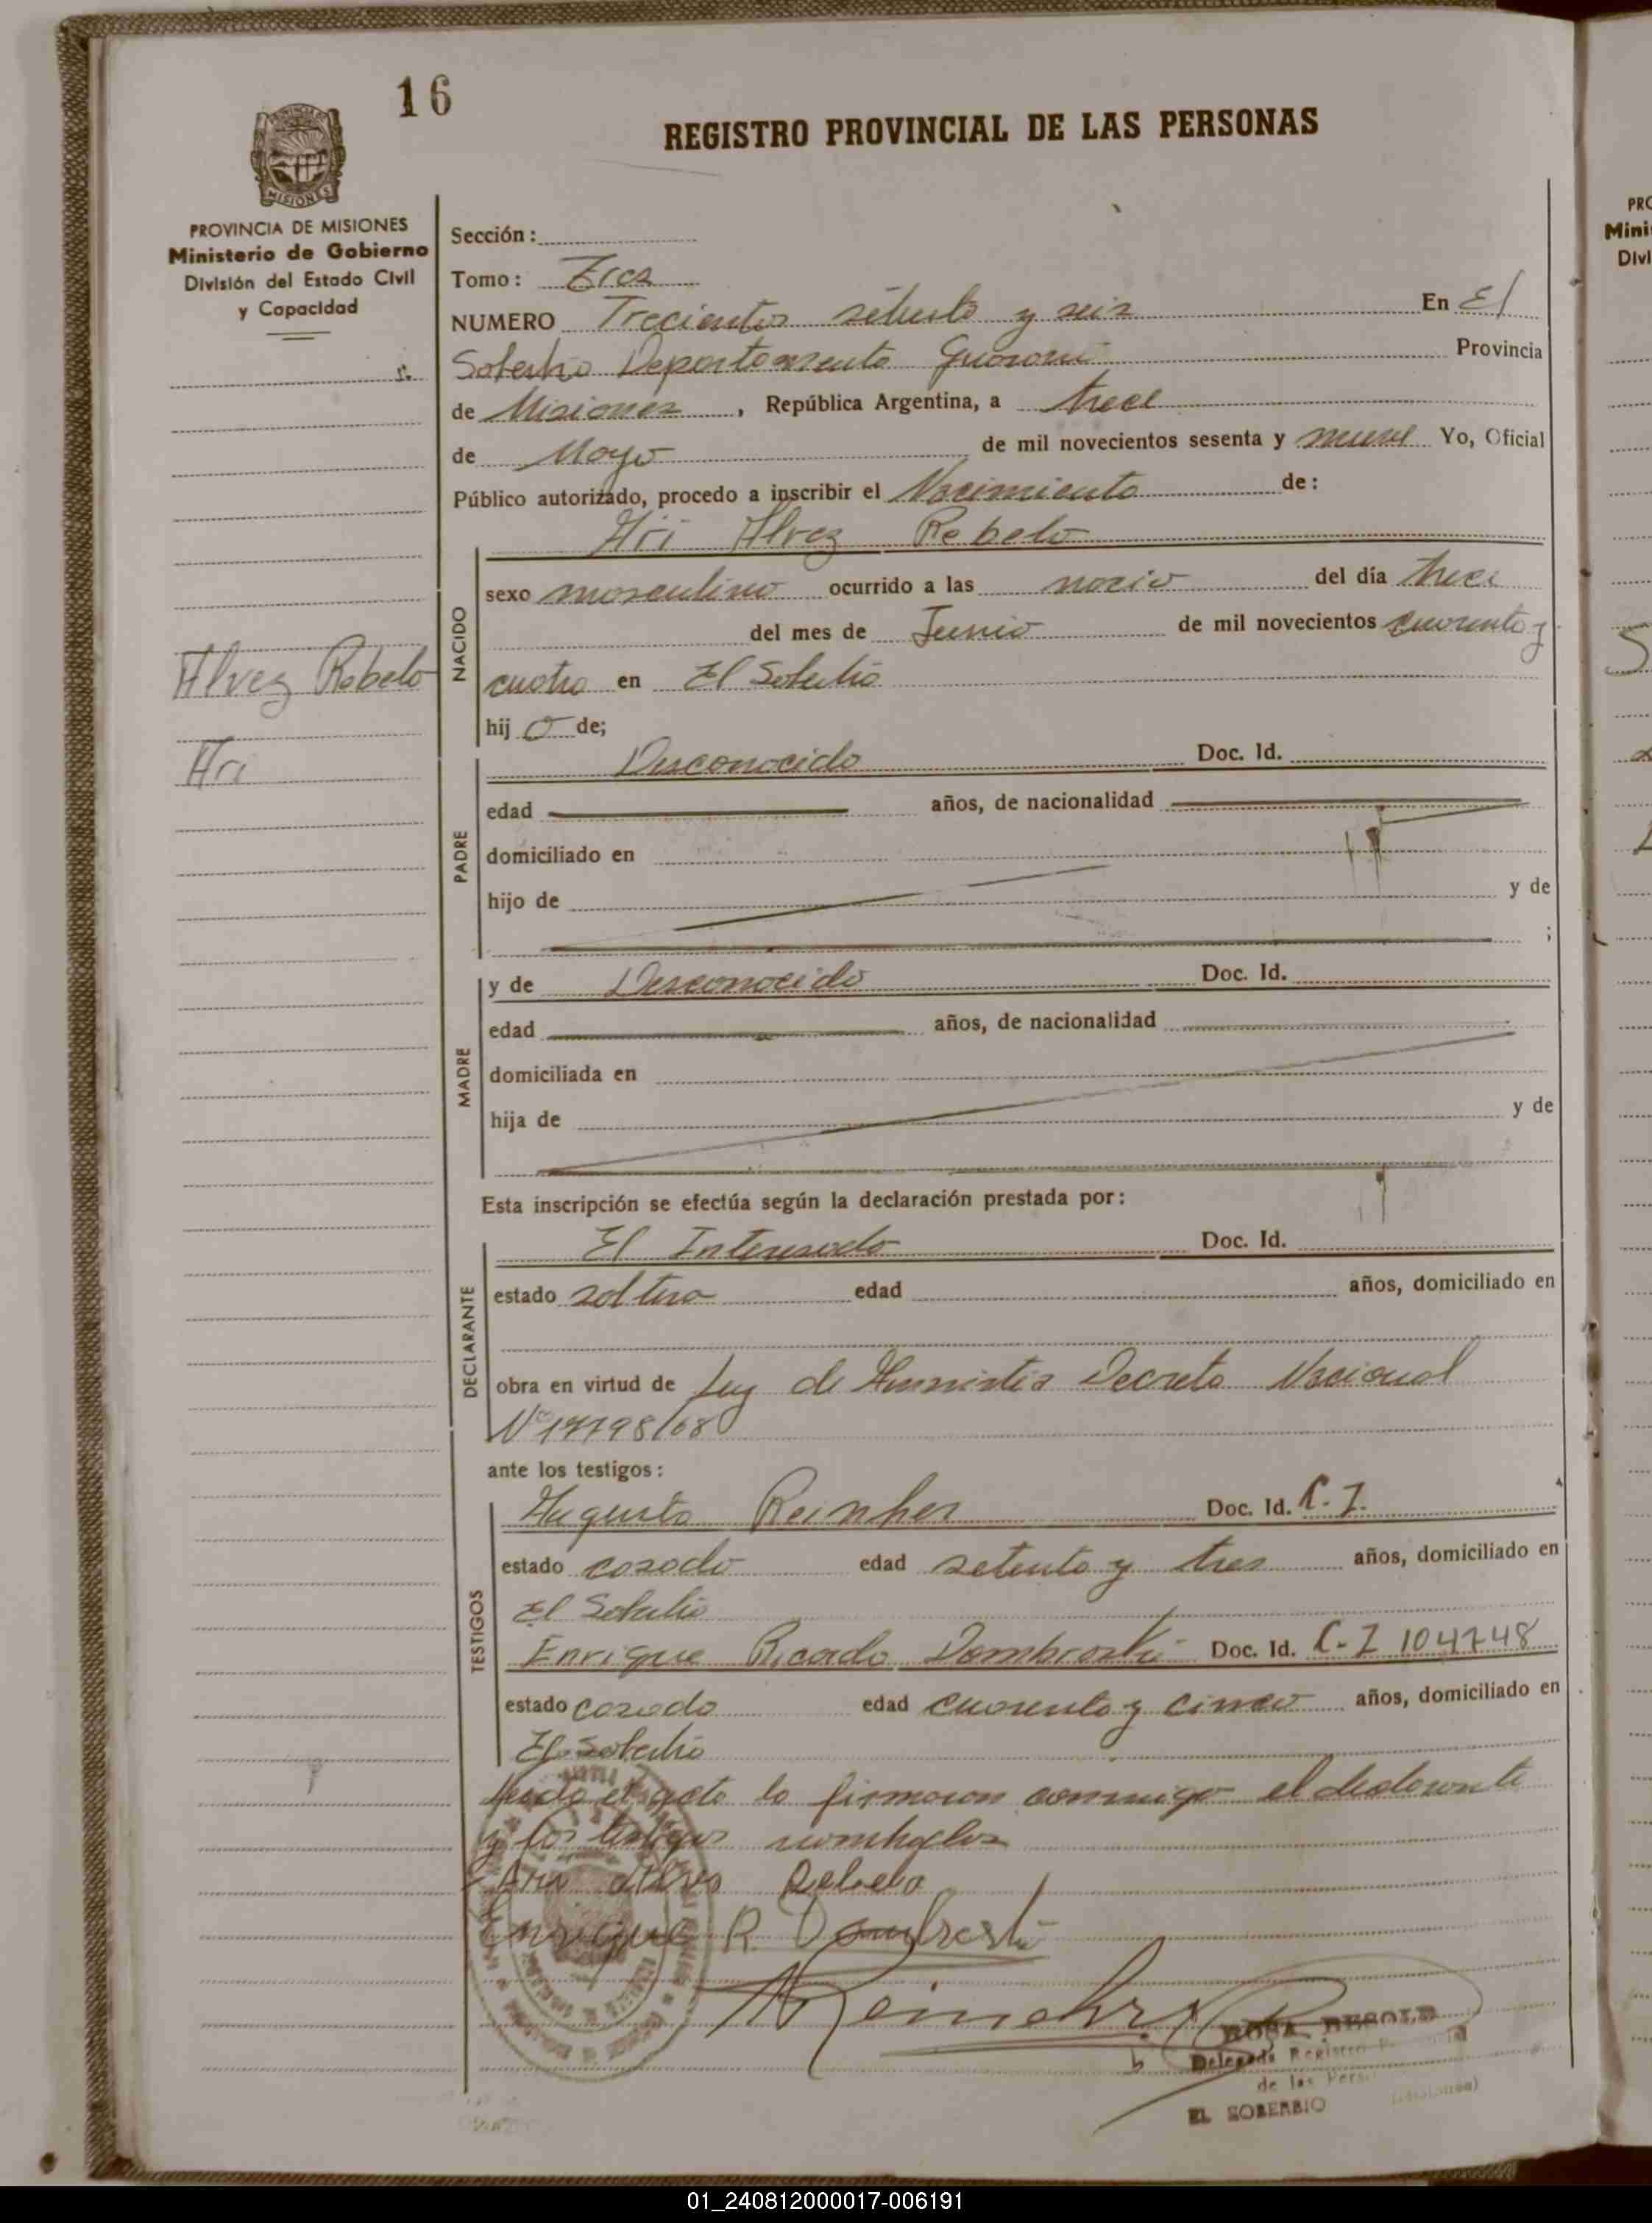 16
REGISTRO PROVINCIAL DE LAS PERSONAS
PROVINCIA DE MISIONES
MISIONES
PROVINCIA DE MISIONES
Ministerio de Gobierno
División del Estado Civil
y Capacidad
Sección:
Tomo: Tres
NUMERO Trecientos setenta y seis En El
Soberbio Departamento Guarani Provincia
de Misiones, República Argentina, a trece
de Mayo de mil novecientos sesenta y nueve Yo, Oficial
Público autorizado, procedo a inscribir el Nacimiento de:
Ari Alvez Rebelo
NACIDO
sexo masculino ocurrido a las nacio del día trece
del mes de Junio de mil novecientos cuarenta y
cuatro en El Soberbio
hij o de;
Alvez Rebelo
Ari
PADRE
Desconocido Doc. Id.
edad años, de nacionalidad
domiciliado en
hijo de y de
;
MADRE
y de Desconocido Doc. Id.
edad años, de nacionalidad
domiciliada en
hija de y de
Esta inscripción se efectúa según la declaración prestada por:
DECLARANTE
El Interesado Doc. Id.
estado soltero edad años, domiciliado en
obra en virtud de Ley de Amnistia Decreto Nacional
Nº 17798/68
ante los testigos:
TESTIGOS
Augusto Reinher Doc. Id. C. I.
estado casado edad setenta y tres años, domiciliado en
El Soberbio
Enrique Ricardo Dombroski Doc. Id. C. I 104748
estado casado edad cuarenta y cinco años, domiciliado en
El Soberbio
Leida el acta la firmaron conmigo el declarante
y los testigos
Ari Alves Rebelo
Enrique R. Dombroski
Reinehr
ROSA BESOLD
Delegada Registro
de las
EL SOBERBIO
PRO
Mini
Divi
01_240812000017-006191